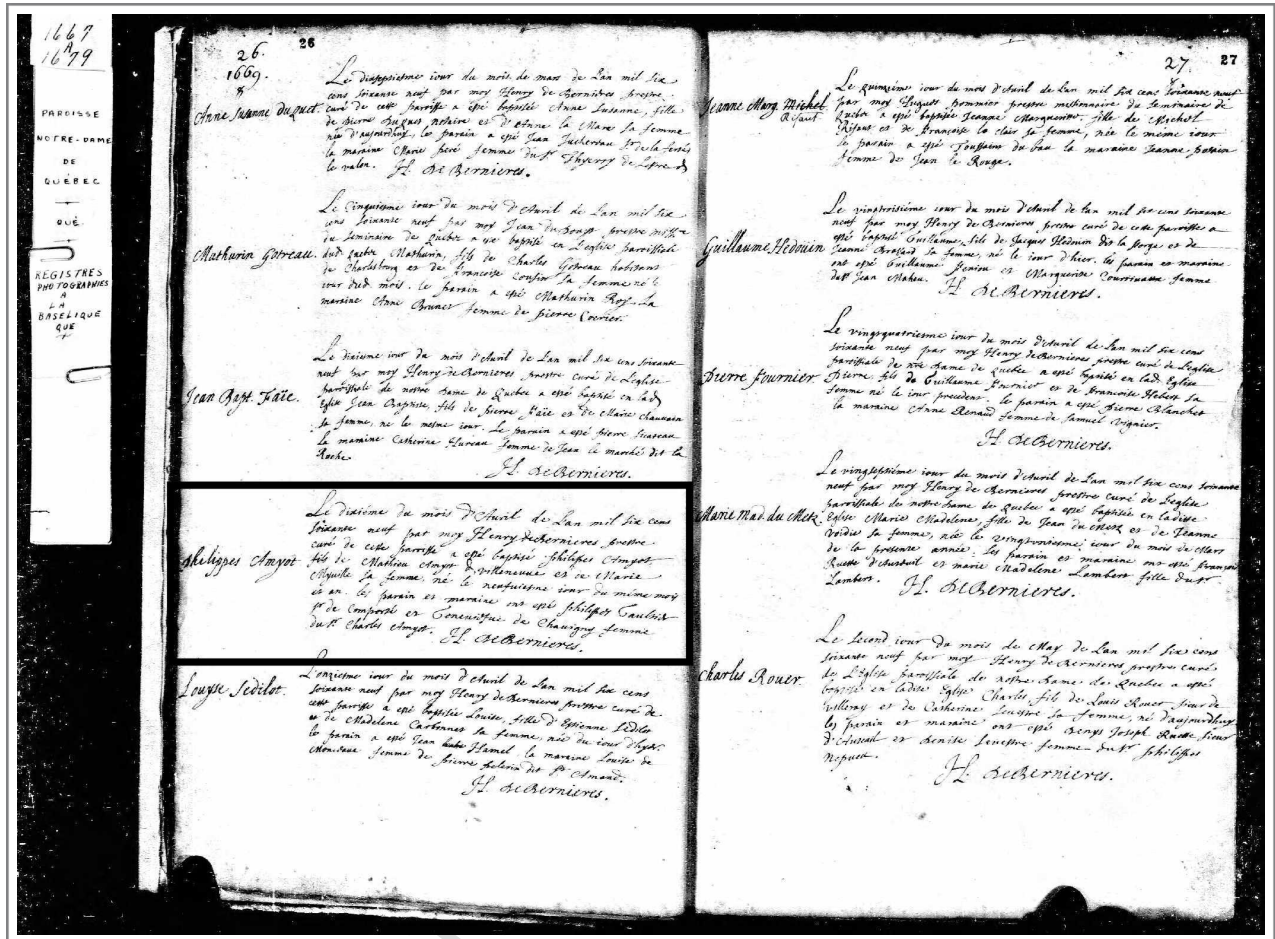 1667
A
1679
PAROISSE
NOTRE-DAME
DE
QUÉBEC
QUÉ.
REGISTRES
PHOTOGRAPHIES
A
LA
BASELIQUE
QUE
26.
26
1669.
8
Anne Susanne Duquet.
Le dixseptiesme iour du mois de mars de Lan mil six
cens soixante neuf par moy Henry de Bernieres prestre
curé de cette parroisse a esté baptisée Anne Susanne, fille
de Pierre Duquet notaire et d'Anne la Mare sa femme
née d'aujourdhuy. le parain a esté Jean Juchereau Sr de la ferté
la maraine Marie femme du Sr Thyerry de Lestre
le valon. H. de Bernieres.
Mathurin Gotreau.
Le Cinquiesme iour du mois d'Avril de Lan mil six
cens soixante neuf par moy Jean prestre
du Seminaire de Quebec a esté baptisé en L'eglise parroissiale
dud. Quebec Mathurin, fils de Charles Gotreau habitant
de Charlesbourg et de Francoise Cousin sa femme né le
iour dud. mois. le parain a esté Mathurin Roy. La
maraine Anne Brunet femme de Pierre
Jean Bapt. Faïe.
Le dixiesme iour du mois d'Avril de Lan mil six cens soixante
neuf par moy Henry de Bernieres prestre curé de L'eglise
parroissiale de nostre Dame de Quebec a esté baptisé en lad.
Eglise Jean Baptiste, fils de Pierre Faïe et de Marie Chauvain
sa femme, né le mesme iour. Le parain a esté Pierre
la maraine Catherine Hureau femme de Jean le marché dit la
Roche. H. de Bernieres.
Philippes Amyot.
Le dixième du mois D'Avril de Lan mil six cens
soixante neuf par moy Henry de Bernieres prestre
curé de cette parroisse a esté baptisé Philippes Amyot
fils de Mathieu Amyot de Villeneuve et de Marie
Myville sa femme, né le neufviesme iour du même mois
et an. les parain et maraine ont esté Philippes Gaultier
Sr de Comporté et Geneviefve de Chavigny femme
du Sr Charles Amyot. H. de Bernieres.
Louyse Sedilot.
L'onziesme iour du mois d'Avril de Lan mil six cens
soixante neuf par moy Henry de Bernieres prestre curé de
cette parroisse a esté baptisée Louise, fille d'Estienne Sedilot
et de Madelene Carbonnet sa femme, née du iour d'hyer.
le parain a esté Jean Hamel. la maraine Louise de
Monceaux femme de Pierre Pelerin dit St Amand.
H. de Bernieres.
27.
27
Jeanne Marg. Michel
Rifaut
Le quinzième iour du mois d'Avril de Lan mil six cens soixante neuf
par moy Hugues Pommier prestre missionaire du Seminaire de
Quebec a esté baptisée Jeanne Marguerite, fille de Michel
Rifaut et de Françoise le clair sa femme, née le même iour
le parain a esté Toussains du bau la maraine Jeanne
femme de Jean le Rouge.
Guillaume Hedouin
Le vintroisième iour du mois d'Avril de Lan mil six cens soixante
neuf par moy Henry de Bernieres prestre curé de cette parroisse a
esté baptisé Guillaume, fils de Jacques Hedouin dit la forge et de
Jeanne Brassard sa femme, né le iour d'hier. les parain et maraine
ont esté Guillaume et Marguerite femme
du Sr Jean Maheu. H. de Bernieres.
Pierre Fournier
Le vingtquatriesme iour du mois d'Avril de Lan mil six cens
soixante neuf par moy Henry de Bernieres prestre curé de L'eglise
parroissiale de nre Dame de Quebec a esté baptisé en lad. Eglise
Pierre, fils de Guillaume Fournier et de Francoise Hebert sa
femme né le iour precedent. le parain a esté Pierre Blanchet
la maraine Anne Renaud femme de Samuel Vignier.
H. de Bernieres.
Marie Mad. du Mets.
Le vingtseptième iour du mois d'Avril de Lan mil six cens soixante
neuf par moy Henry de Bernieres prestre curé de L'eglise
parroissiale de nostre Dame de Quebec a esté baptisée en ladite
Eglise Marie Madelene, fille de Jean du Mets et de Jeanne
Voidie sa femme, née le vingtroisiesme iour du mois de Mars
de la presente année. les parain et maraine ont esté François
Ruette d'Auteuil et marie Madelene Lambert fille du Sr
Lambert. H. de Bernieres.
Charles Rouer.
Le second iour du mois de May de Lan mil six cens
soixante neuf par moy Henry de Bernieres prestre curé
de L'Eglise parroissiale de nostre Dame de Quebec a esté
baptisé en ladite Eglise Charles, fils de Louis Rouer Sieur de
Villeray et de Catherine Sevestre sa femme, né d'aujourdhuy
les parain et maraine ont esté Denys Joseph Ruette Sieur
d'Auteuil et Denise Sevestre femme du Sr Philippes
Nepveu. H. de Bernieres.